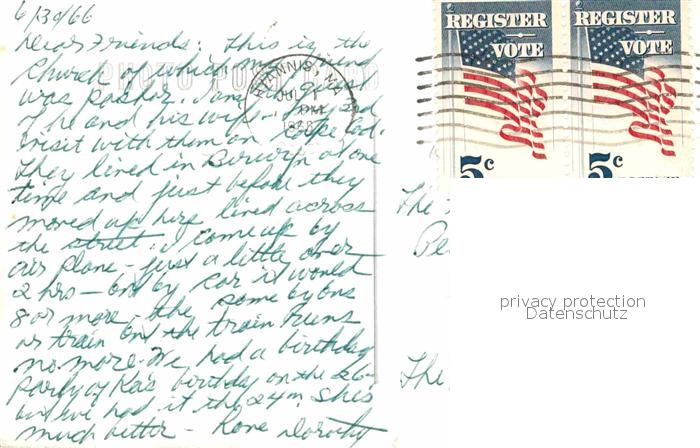 6/30/66
Dear Friends: This is the
Church of which my friend
was pastor. am a guest
of he and his wife. Enjoyed
visit with them on Cape Cod.
They lived in Berwyn at one
time and just before they
moved up here lived across
the street. I came up by
air plane - just a little over
2 hrs - and by car it would
8 or more - the same by bus
or train but the train runs
no more. We had a birthday
party of Ka's birthday on the 26
but we had it the 24th. She's
much better - Love Dorothy
PHOTO POST CARD
HYANNIS, MA
JUL
PM
REGISTER
VOTE
5c
REGISTER
VOTE
5c
The
Be
The
privacy protection
Datenschutz